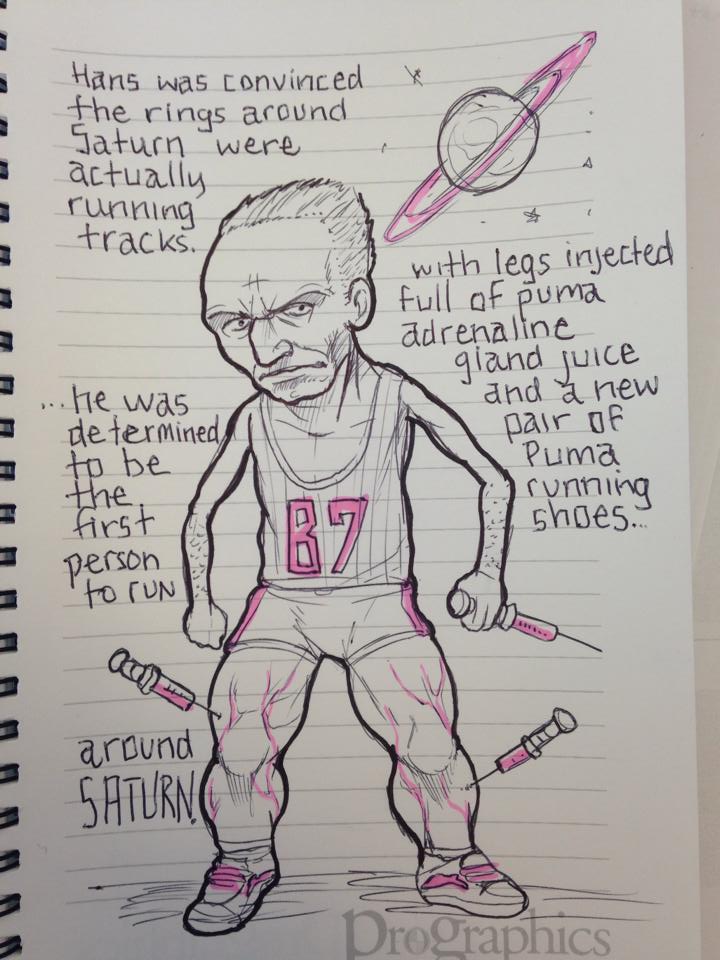 Hans was convinced
the rings around
Saturn were
actually
running
tracks.
with legs injected
full of puma
adrenaline
gland juice
and a new
pair of
Puma
running
shoes...
...he was
determined
to be
the
first
person
to run
around
SATURN!
87
Prographics